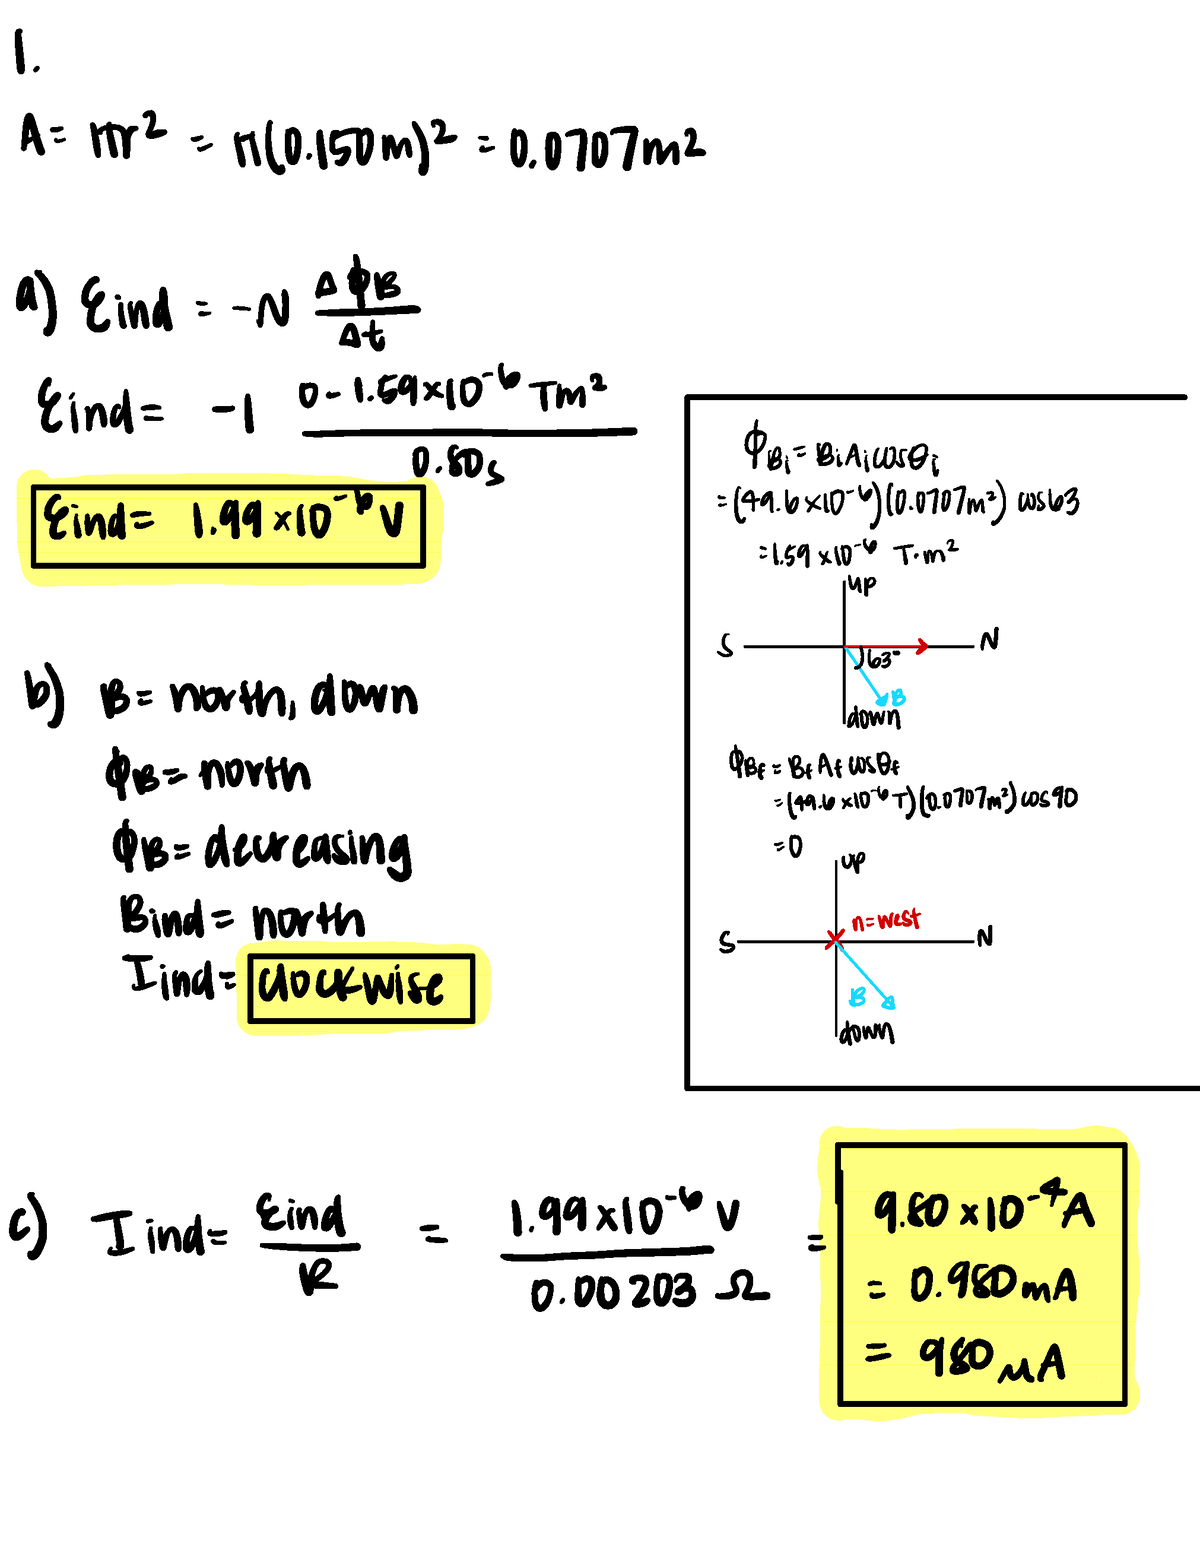 1.
A = πr² = π(0.150m)² = 0.0707m²
a) Ɛind = -N ΔϕB / Δt
Ɛind = -1 0 - 1.59×10⁻⁶ Tm² / 0.80s
Ɛind = 1.99×10⁻⁶ V
ϕBi = BiAicosθi
= (49.6×10⁻⁶)(0.0707m²) cos63
= 1.59×10⁻⁶ T·m²
up
S N
63°
B
down
ϕBf = Bf Af cosθf
= (49.6×10⁻⁶T)(0.0707m²) cos90
= 0
up
n=west
S N
B
down
b) B = north, down
ϕB = north
ϕB = decreasing
Bind = north
Iind = clockwise
c) Iind = Ɛind / R = 1.99×10⁻⁶ V / 0.00203 Ω = 9.80×10⁻⁴A
= 0.980mA
= 980μA